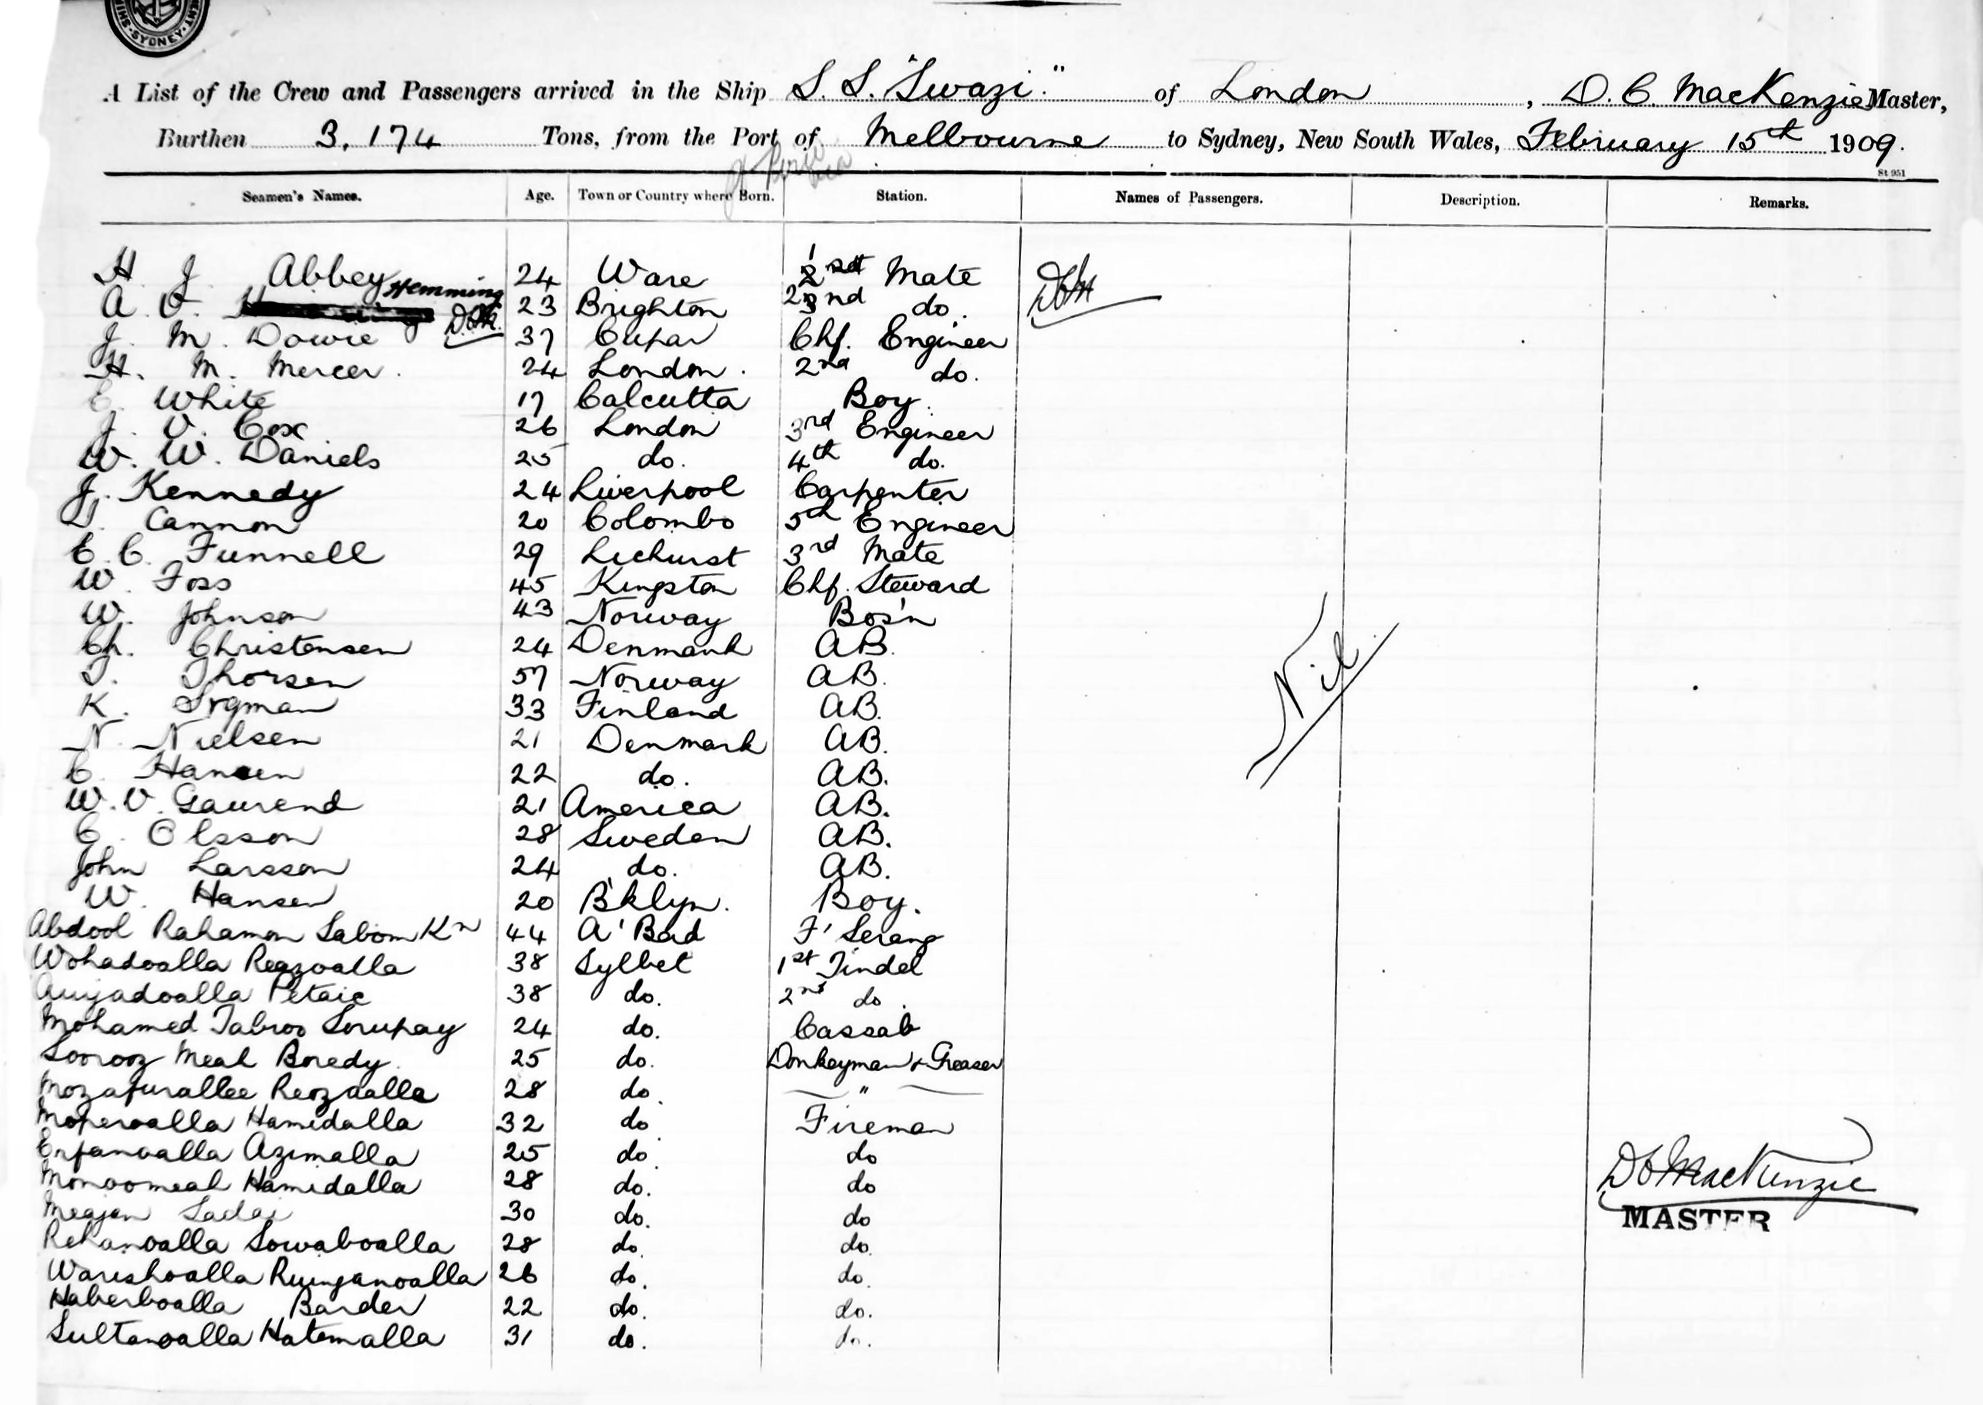 SYDNEY
A List of the Crew and Passengers arrived in the Ship S. S. "Swazi" of London, D. C. MacKenzie Master,
Burthen 3,174 Tons, from the Port of Melbourne to Sydney, New South Wales, February 15th 1909.
St 951
Seamen's Names. Age. Town or Country where Born. Station. Names of Passengers. Description. Remarks.
H. J. Abbey 24 Ware 1st Mate
A. V. Hemming 23 Brighton 2nd do.
J. M. Dowie 37 Cupar Chf. Engineer
H. M. Mercer. 24 London. 2nd do.
E. White 17 Calcutta Boy.
J. V. Cox 26 London 3rd Engineer
W. W. Daniels 25 do. 4th do.
J. Kennedy 24 Liverpool Carpenter
Cannon 20 Colombo 5th Engineer
E. C. Funnell 29 3rd Mate
W. Foss 45 Kingston Chf. Steward
W. Johnson 43 Norway Bos'n
Ch. Christensen 24 Denmark AB.
T. Thorsen 57 Norway AB.
K. 33 Finland AB.
N. Nielsen 21 Denmark AB.
C. Hansen 22 do. AB.
W. V. Gaurend 21 America AB.
C. Olsson 28 Sweden AB.
John Larsson 24 do. AB.
W. Hansen 20 B'klyn. Boy.
Abdool Rahamon 44 A'Bad F' Serang
Wohadoalla Reazoalla 38 Sylbet 1st Tindel
Petaic 38 do. 2nd do.
Mohamed Tabroo 24 do. Cassab
Soorooz Meah Boredy. 25 do. Donkeyman & Greaser
Mozafurallee Reozdalla 28 do. "
Moferoalla Hamidalla 32 do. Fireman
Erfanoalla Azimalla 25 do. do
Monoomeah Hamidalla 28 do. do
Meajan Sadai 30 do. do
Rehanoalla Sowaboalla 28 do. do.
Warishoalla 26 do. do.
Haberboalla Barder 22 do. do.
Sultanoalla Hatemalla 31 do. do.
Nil
D C MacKenzie
MASTER